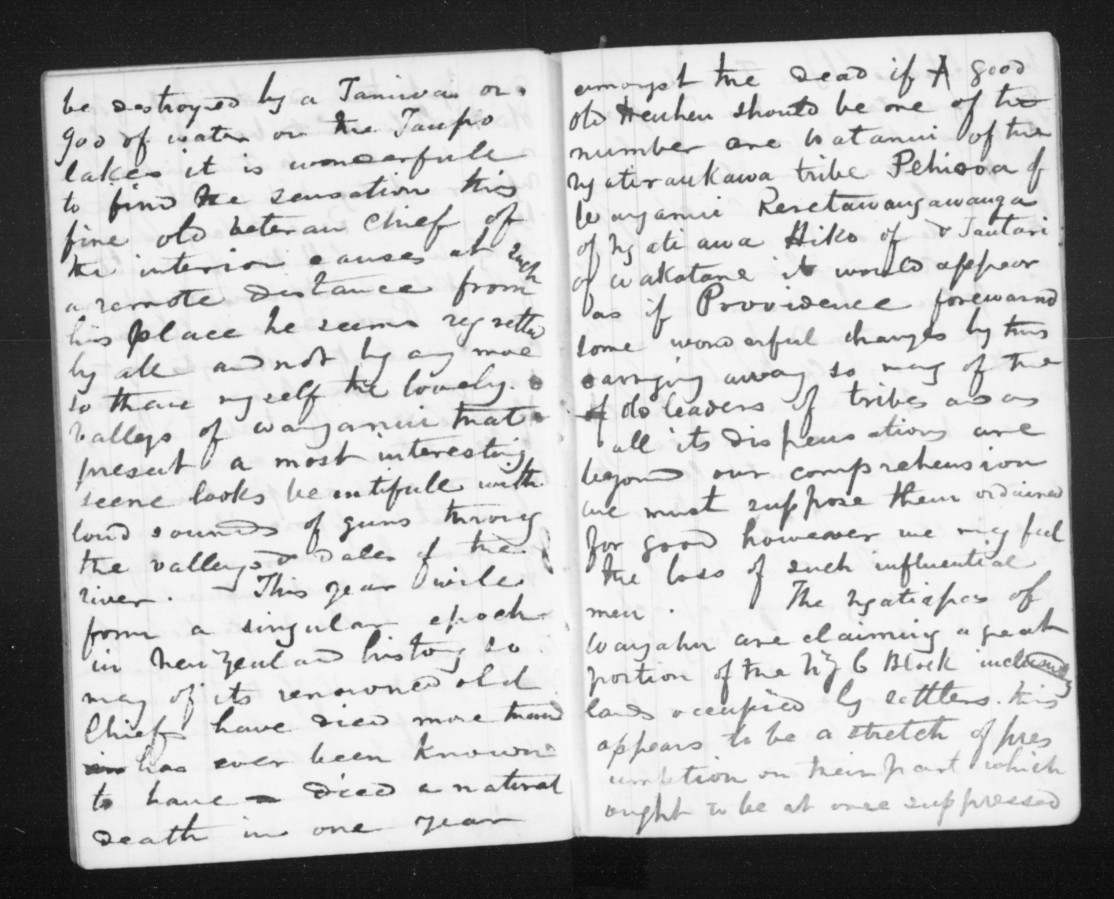 be destroyed by a Taniwa or
god of water on the Taupo
lakes it is wonderfull
to find the sensation this
fine old veteran Chief of
the interior causes at such
a remote distance from
his place he seems regretted
by all and not by any more
so than myself the lovely
valleys of wanganui that
present a most interesting
scene looks beautifull with
loud sounds of guns throug
the valleys & dales of the
river. - This year wile
form a singular epoch
in New Zealand history so
many of its renowned old
Chiefs have died more than
has ever been known
to have died a natural
death in one year
amongst the dead if A good
old Heuheu should be one of the
number are Watanui of the
Ngatiraukawa tribe Pehioroa of
Wanganui Reretawangawanga
of Ngatiawa Hiko of do Tautari
of Wakatane it would appear
as if Providence forewarnd
some wonderful changes by this
carrying away so many of the
old leaders of tribes as as
all its dispensations are
beyond our comprehension
we must suppose them ordained
for good however we may feel
the loss of such influential
men. The Ngatiapas of
Wangahu are claiming a great
portion of the NZ C Block including
land occupied by settlers. this
appears to be a stretch of pres
umbtion on their part which
ought to be at once suppressed